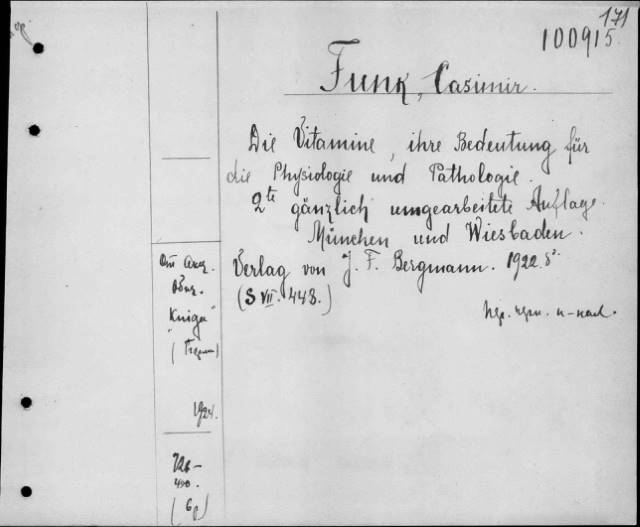 171
100915.
Funk, Casimir.
Die Vitamine, ihre Bedeutung für
die Physiologie und Pathologie.
2te gänzlich umgearbeitete Auflage.
München und Wiesbaden.
Verlag von J. F. Bergmann. 1922. 8°.
(S VII. 448.)
"Kniga"
1924.